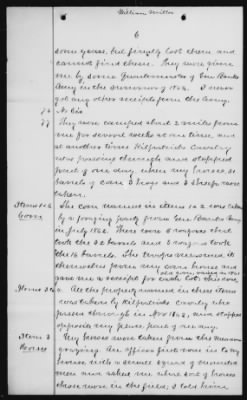 William Miller
6
some years, but finally lost them and
cannot find them. They were given
me by some Quartermaster of Gen Banks
Army in the summer of 1862. I never
got any other receipts from the Army.
76 No Sir
77 They were camped about 2 miles from
me for several weeks at one time, and
at another time Kilpatricks Cavalry
was passing through and stopped
part of one day, when my horses, 50
barrels of corn 3 hogs and 3 sheep were
taken.
Items 1 & 2 The corn named in items 1 & 2 was taken
Corn by a foraging party from Gen Banks Army
in July 1862. There were 6 wagons that
took the 32 barrels and 3 wagons took
the 16 barrels. The troops measured it
themselves from my corn house and
gave me a receipt for each lot
a. All the property named in these items
was taken by Kilpatricks Cavalry who
passed through in Nov 1863, and stopped
opposite my place part of one day.
Item 3 My horses were taken from the
Horses grazing. An officer first rode in to my
house with a small squad of mounted
men and asked me whose lot of horses
those were in the field; I told him